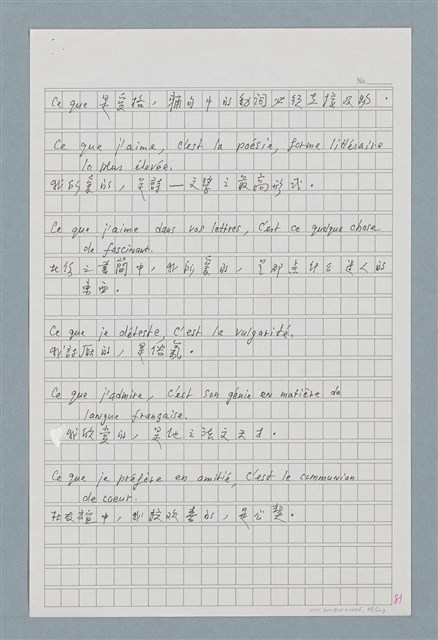 No.
Ce que 是受格，補句中的動詞必須直接及物．
Ce que j'aime, c'est la poésie, forme littéraire
la plus élevée.
我所愛的，是詩—文學之最高形式．
Ce que j'aime dans vos lettres, C'est ce quelque chose
de fascinant.
在你之書簡中，我所愛的，是那点什么迷人的
東西．
Ce que je déteste, C'est la vulgarité.
我討厭的，是俗氣．
Ce que j'admire, C'est son génie en matière de
langue française.
我欣賞的，是他之法文天才．
Ce que je préfère en amitié, c'est le communion
de coeur.
在友誼中，我較欢喜的，是心契．
81